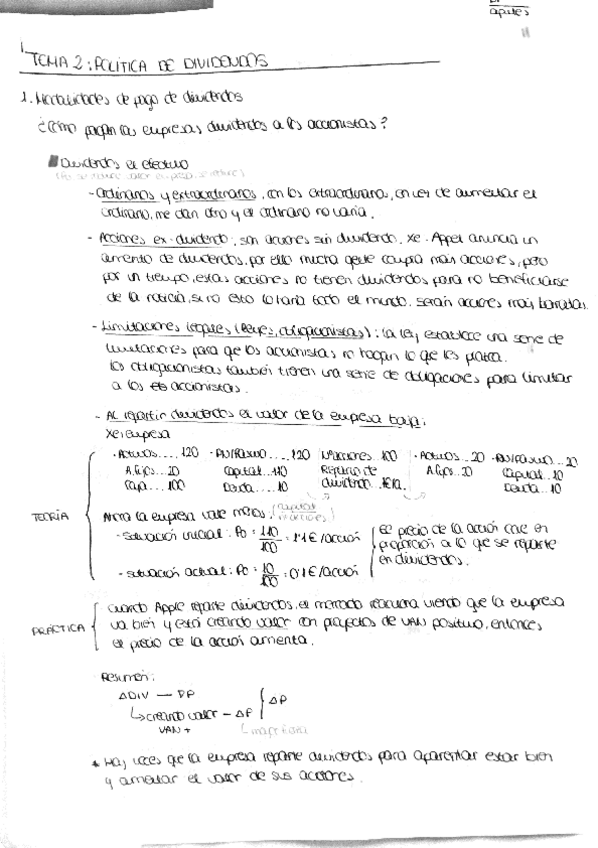 apuntes
TEMA 2: POLÍTICA DE DIVIDENDOS
1. Modalidades de pago de dividendos
¿Cómo pagan las empresas dividendos a los accionistas?
Dividendos en efectivo
- Ordinarios y extraordinarios, con los extraordinarios, en vez de aumentar el
ordinario, me dan otro y el ordinario no varía.
- Acciones ex-dividendo: son acciones sin dividendo, xe. Appel anuncia un
aumento de dividendos, por ello mucha gente compra más acciones, pero
por un tiempo, estas acciones no tienen dividendos para no beneficiarse
de la noticia, si no esto lo haría todo el mundo. Serán acciones más baratas.
- Limitaciones legales (leyes, obligacionistas): la ley establece una serie de
limitaciones para que los accionistas no hagan lo que les
los obligacionistas también tienen una serie de obligaciones para limitar
a los accionistas.
- Al repartir dividendos el valor de la empresa baja:
xe: empresa
· Activos.....120 · PN/Pasivo....120 Nº acciones 100 · Activos..20 · PN/Pasivo..20
A. fijos...20 Capital..110 Reparto de A. fijos..20 Capital..10
Caja....100 Deuda....10 dividendo.. Deuda..10
TEORÍA
Ahora la empresa vale menos: (capital / nº acciones)
- Situación inicial: P0 = 110/100 = 1'1€/acción
- Situación actual: P0 = 10/100 = 0'1€/acción
El precio de la acción cae en
proporción a lo que se reparte
en dividendos.
PRÁCTICA
Cuando Apple reparte dividendos, el mercado reacciona viendo que la empresa
va bien y está creando valor con proyectos de VAN positivo, entonces
el precio de la acción aumenta.
Resumen:
ΔDIV — ∇P
↳ creando valor — ΔP
VAN +
ΔP
* Hay veces que la empresa reparte dividendos para aparentar estar bien
y aumentar el valor de sus acciones.